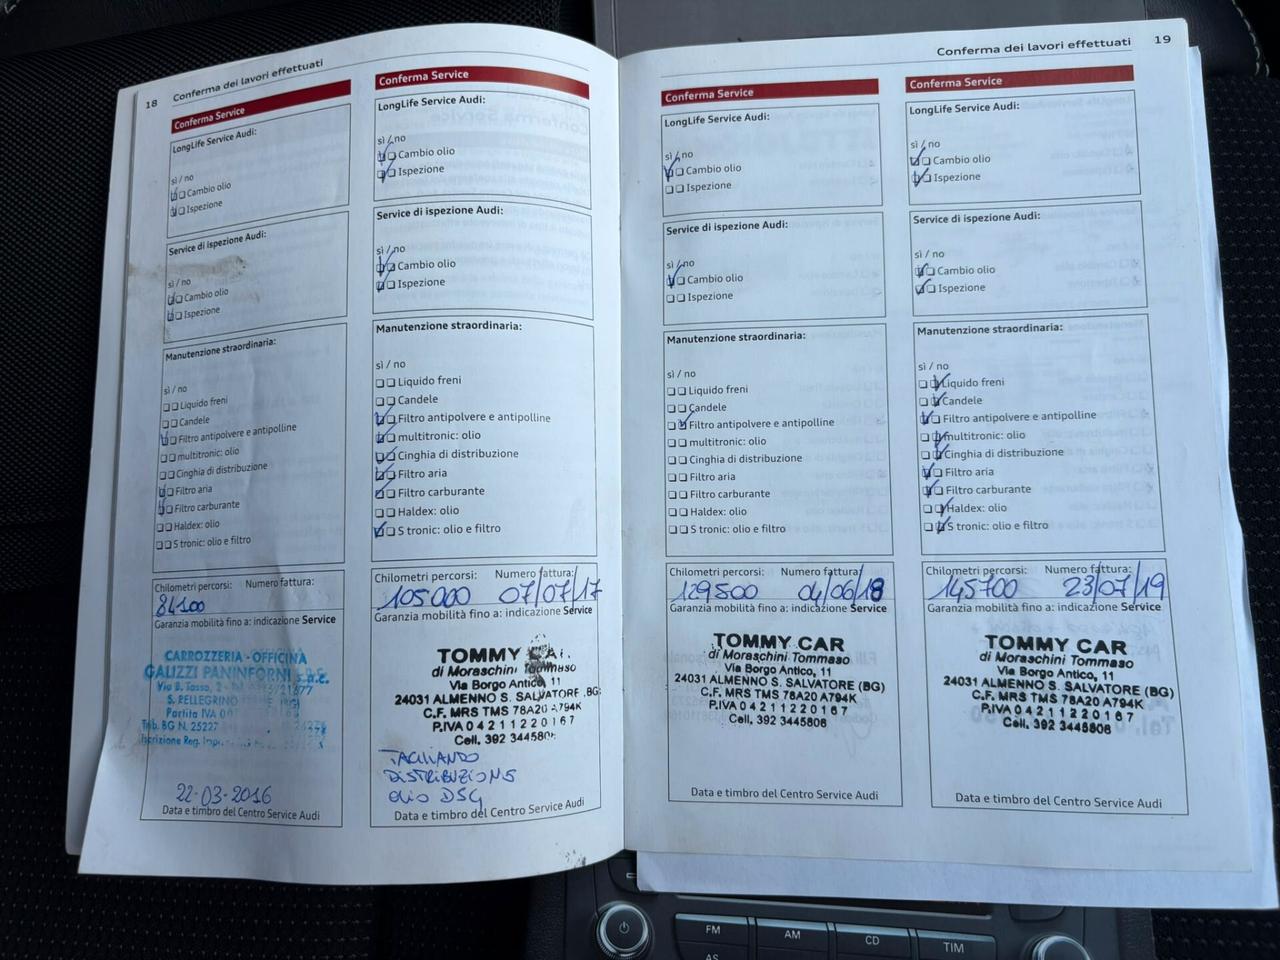 18 Conferma dei lavori effettuati
Conferma Service
LongLife Service Audi:
sì / no
Cambio olio
Ispezione
Service di ispezione Audi:
sì / no
Cambio olio
Ispezione
Manutenzione straordinaria:
sì / no
Liquido freni
Candele
Filtro antipolvere e antipolline
multitronic: olio
Cinghia di distribuzione
Filtro aria
Filtro carburante
Haldex: olio
S tronic: olio e filtro
Chilometri percorsi: Numero fattura:
84100
Garanzia mobilità fino a: indicazione Service
CARROZZERIA - OFFICINA
GALIZZI PANINFORNI s.n.c.
Via B. Tasso, 2 - Tel.
S. PELLEGRINO
Partita IVA
Trib. BG N. 25227
Iscrizione Reg.
22-03-2016
Data e timbro del Centro Service Audi
Conferma Service
LongLife Service Audi:
sì / no
Cambio olio
Ispezione
Service di ispezione Audi:
sì / no
Cambio olio
Ispezione
Manutenzione straordinaria:
sì / no
Liquido freni
Candele
Filtro antipolvere e antipolline
multitronic: olio
Cinghia di distribuzione
Filtro aria
Filtro carburante
Haldex: olio
S tronic: olio e filtro
Chilometri percorsi: Numero fattura:
105000 07/07/17
Garanzia mobilità fino a: indicazione Service
TOMMY
di Moraschini Tommaso
Via Borgo Antico, 11
24031 ALMENNO S. SALVATORE (BG)
C.F. MRS TMS 78A20 A794K
P.IVA 0 4 2 1 1 2 2 0 1 6 7
Cell. 392 3445806
TAGLIANDO
DISTRIBUZIONE
olio DSG
Data e timbro del Centro Service Audi
Conferma dei lavori effettuati 19
Conferma Service
LongLife Service Audi:
sì / no
Cambio olio
Ispezione
Service di ispezione Audi:
sì / no
Cambio olio
Ispezione
Manutenzione straordinaria:
sì / no
Liquido freni
Candele
Filtro antipolvere e antipolline
multitronic: olio
Cinghia di distribuzione
Filtro aria
Filtro carburante
Haldex: olio
S tronic: olio e filtro
Chilometri percorsi: Numero fattura:
129500 04/06/18
Garanzia mobilità fino a: indicazione Service
TOMMY CAR
di Moraschini Tommaso
Via Borgo Antico, 11
24031 ALMENNO S. SALVATORE (BG)
C.F. MRS TMS 78A20 A794K
P.IVA 0 4 2 1 1 2 2 0 1 6 7
Cell. 392 3445806
Data e timbro del Centro Service Audi
Conferma Service
LongLife Service Audi:
sì / no
Cambio olio
Ispezione
Service di ispezione Audi:
sì / no
Cambio olio
Ispezione
Manutenzione straordinaria:
sì / no
Liquido freni
Candele
Filtro antipolvere e antipolline
multitronic: olio
Cinghia di distribuzione
Filtro aria
Filtro carburante
Haldex: olio
S tronic: olio e filtro
Chilometri percorsi: Numero fattura:
145700 23/07/19
Garanzia mobilità fino a: indicazione Service
TOMMY CAR
di Moraschini Tommaso
Via Borgo Antico, 11
24031 ALMENNO S. SALVATORE (BG)
C.F. MRS TMS 78A20 A794K
P.IVA 0 4 2 1 1 2 2 0 1 6 7
Cell. 392 3445806
Data e timbro del Centro Service Audi
FM AM CD TIM
AS